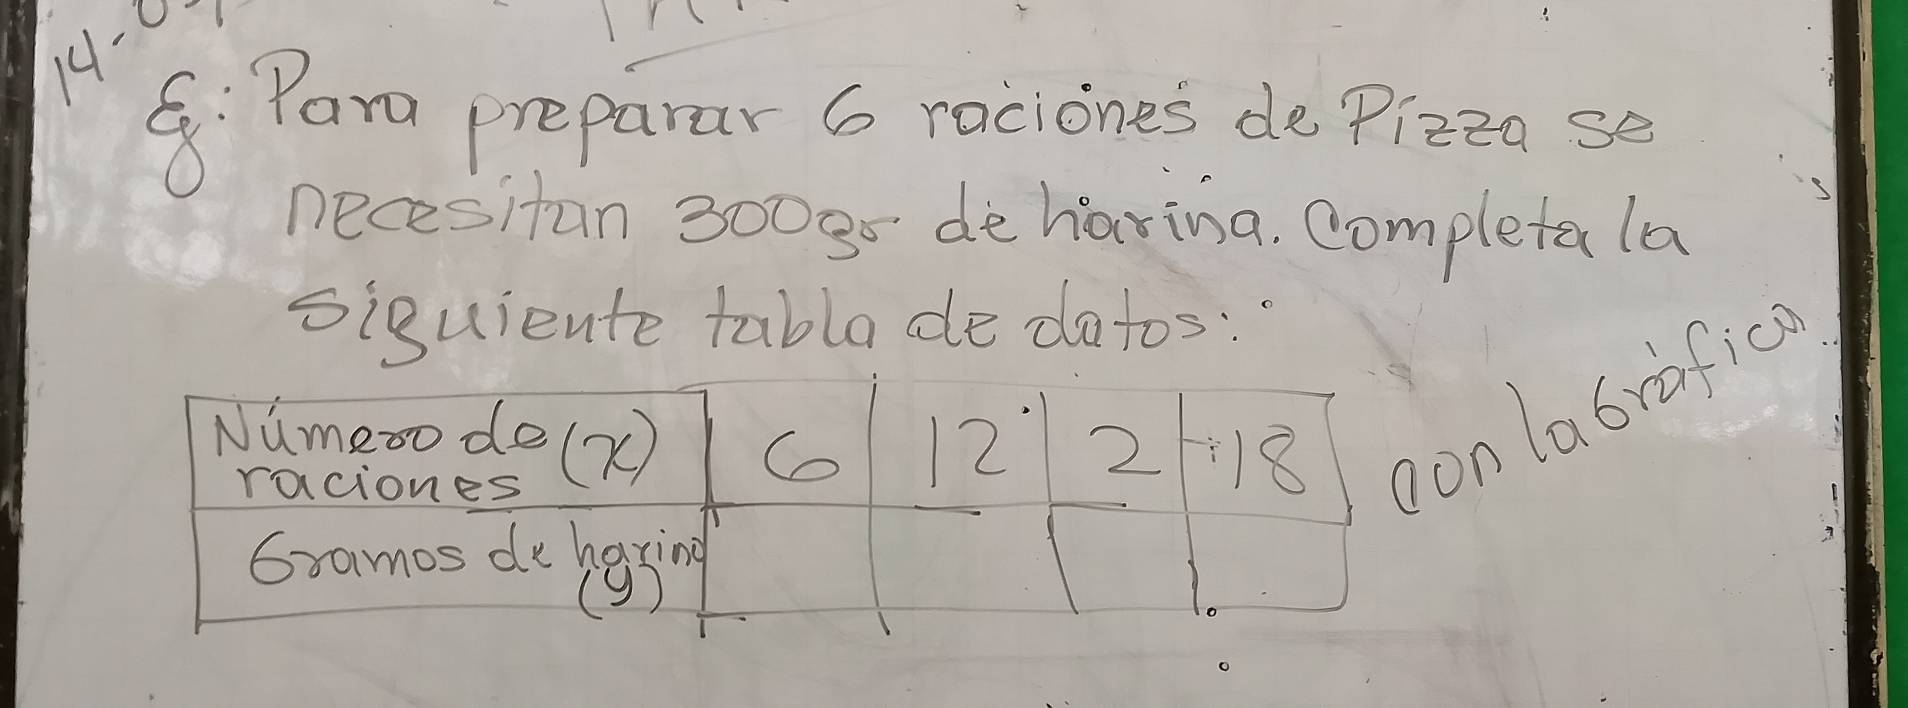 14-
Ej: Para preparar 6 raciones de Pizza se
necesitan 300gr de harina. Completa la
siguiente tabla de datos:
Número de raciones (x) 6 12 2 18
Gramos de harina (y)
con la Gráfica